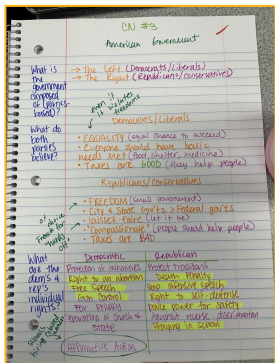 CN #3
American Government
What is the government composed of (politics-based)?
→ The Left (Democrats/Liberals)
→ The Right (Republicans/conservatives)
even if it violates freedoms
Democrats/Liberals
What do both parties believe?
• EQUALITY (equal chance to succeed)
• Everyone should have basic needs met (food, shelter, medicine)
• Taxes are GOOD (they help people)
Republicans/Conservatives
• FREEDOM (small government)
• City & State Gov'ts > Federal gov'ts
• Laissez Faire (let it be)
French for "hands off"
• "Compassionate" (people should help people)
• Taxes are BAD
What are the dem's & rep's individual rights?
Democratic
Republican
Protection of minorities
Protect Traditions
Right to an abortion
Death Penalty
Free speech
Stop offensive speech
Gun Control
Right to self-defense
For Privacy
Police power for safety
Separation of church & state
Against reverse discrimination
Praying in school
Affirmative Action